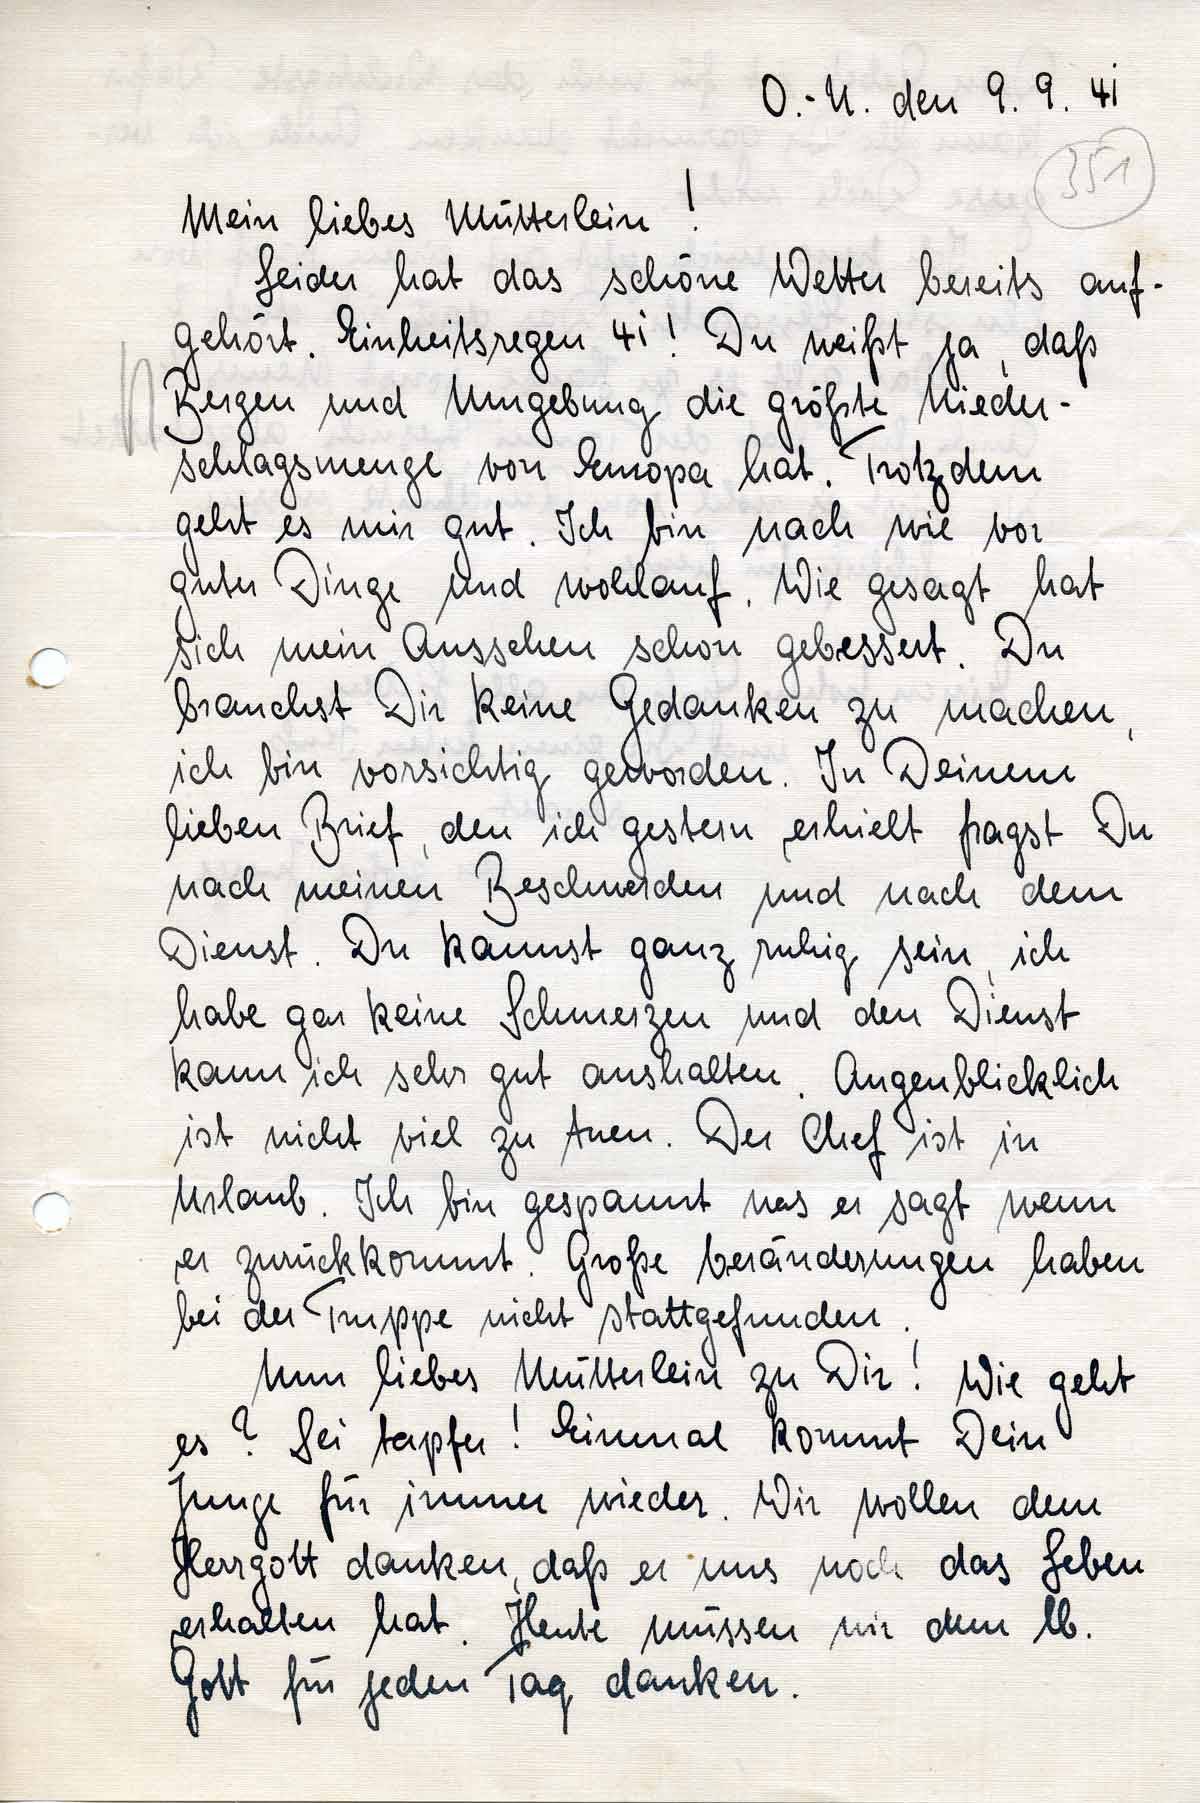 O.-U. den 9. 9. 41
351
Mein liebes Mütterlein!
Leider hat das schöne Wetter bereits auf-
gehört. Einheitsregen 41! Du weißt ja, daß
Bergen und Umgebung die größte Nieder-
schlagsmenge von Europa hat. Trotzdem
geht es mir gut. Ich bin nach wie vor
guter Dinge und wohlauf. Wie gesagt hat
sich mein Aussehen schon gebessert. Du
brauchst Dir keine Gedanken zu machen,
ich bin vorsichtig geworden. In Deinem
lieben Brief, den ich gestern erhielt fragst Du
nach meinen Beschwerden und nach dem
Dienst. Du kannst ganz ruhig sein, ich
habe gar keine Schmerzen und den Dienst
kann ich sehr gut aushalten. Augenblicklich
ist nicht viel zu tuen. Der Chef ist in
Urlaub. Ich bin gespannt was er sagt wenn
er zurückkommt. Große Veränderungen haben
bei der Truppe nicht stattgefunden.
Nun liebes Mütterlein zu Dir! Wie geht
es? Sei tapfer! Einmal kommt Dein
Junge für immer wieder. Wir wollen dem
Herrgott danken, daß er uns noch das Leben
erhalten hat. Heute müssen wir dem lb.
Gott für jeden Tag danken.